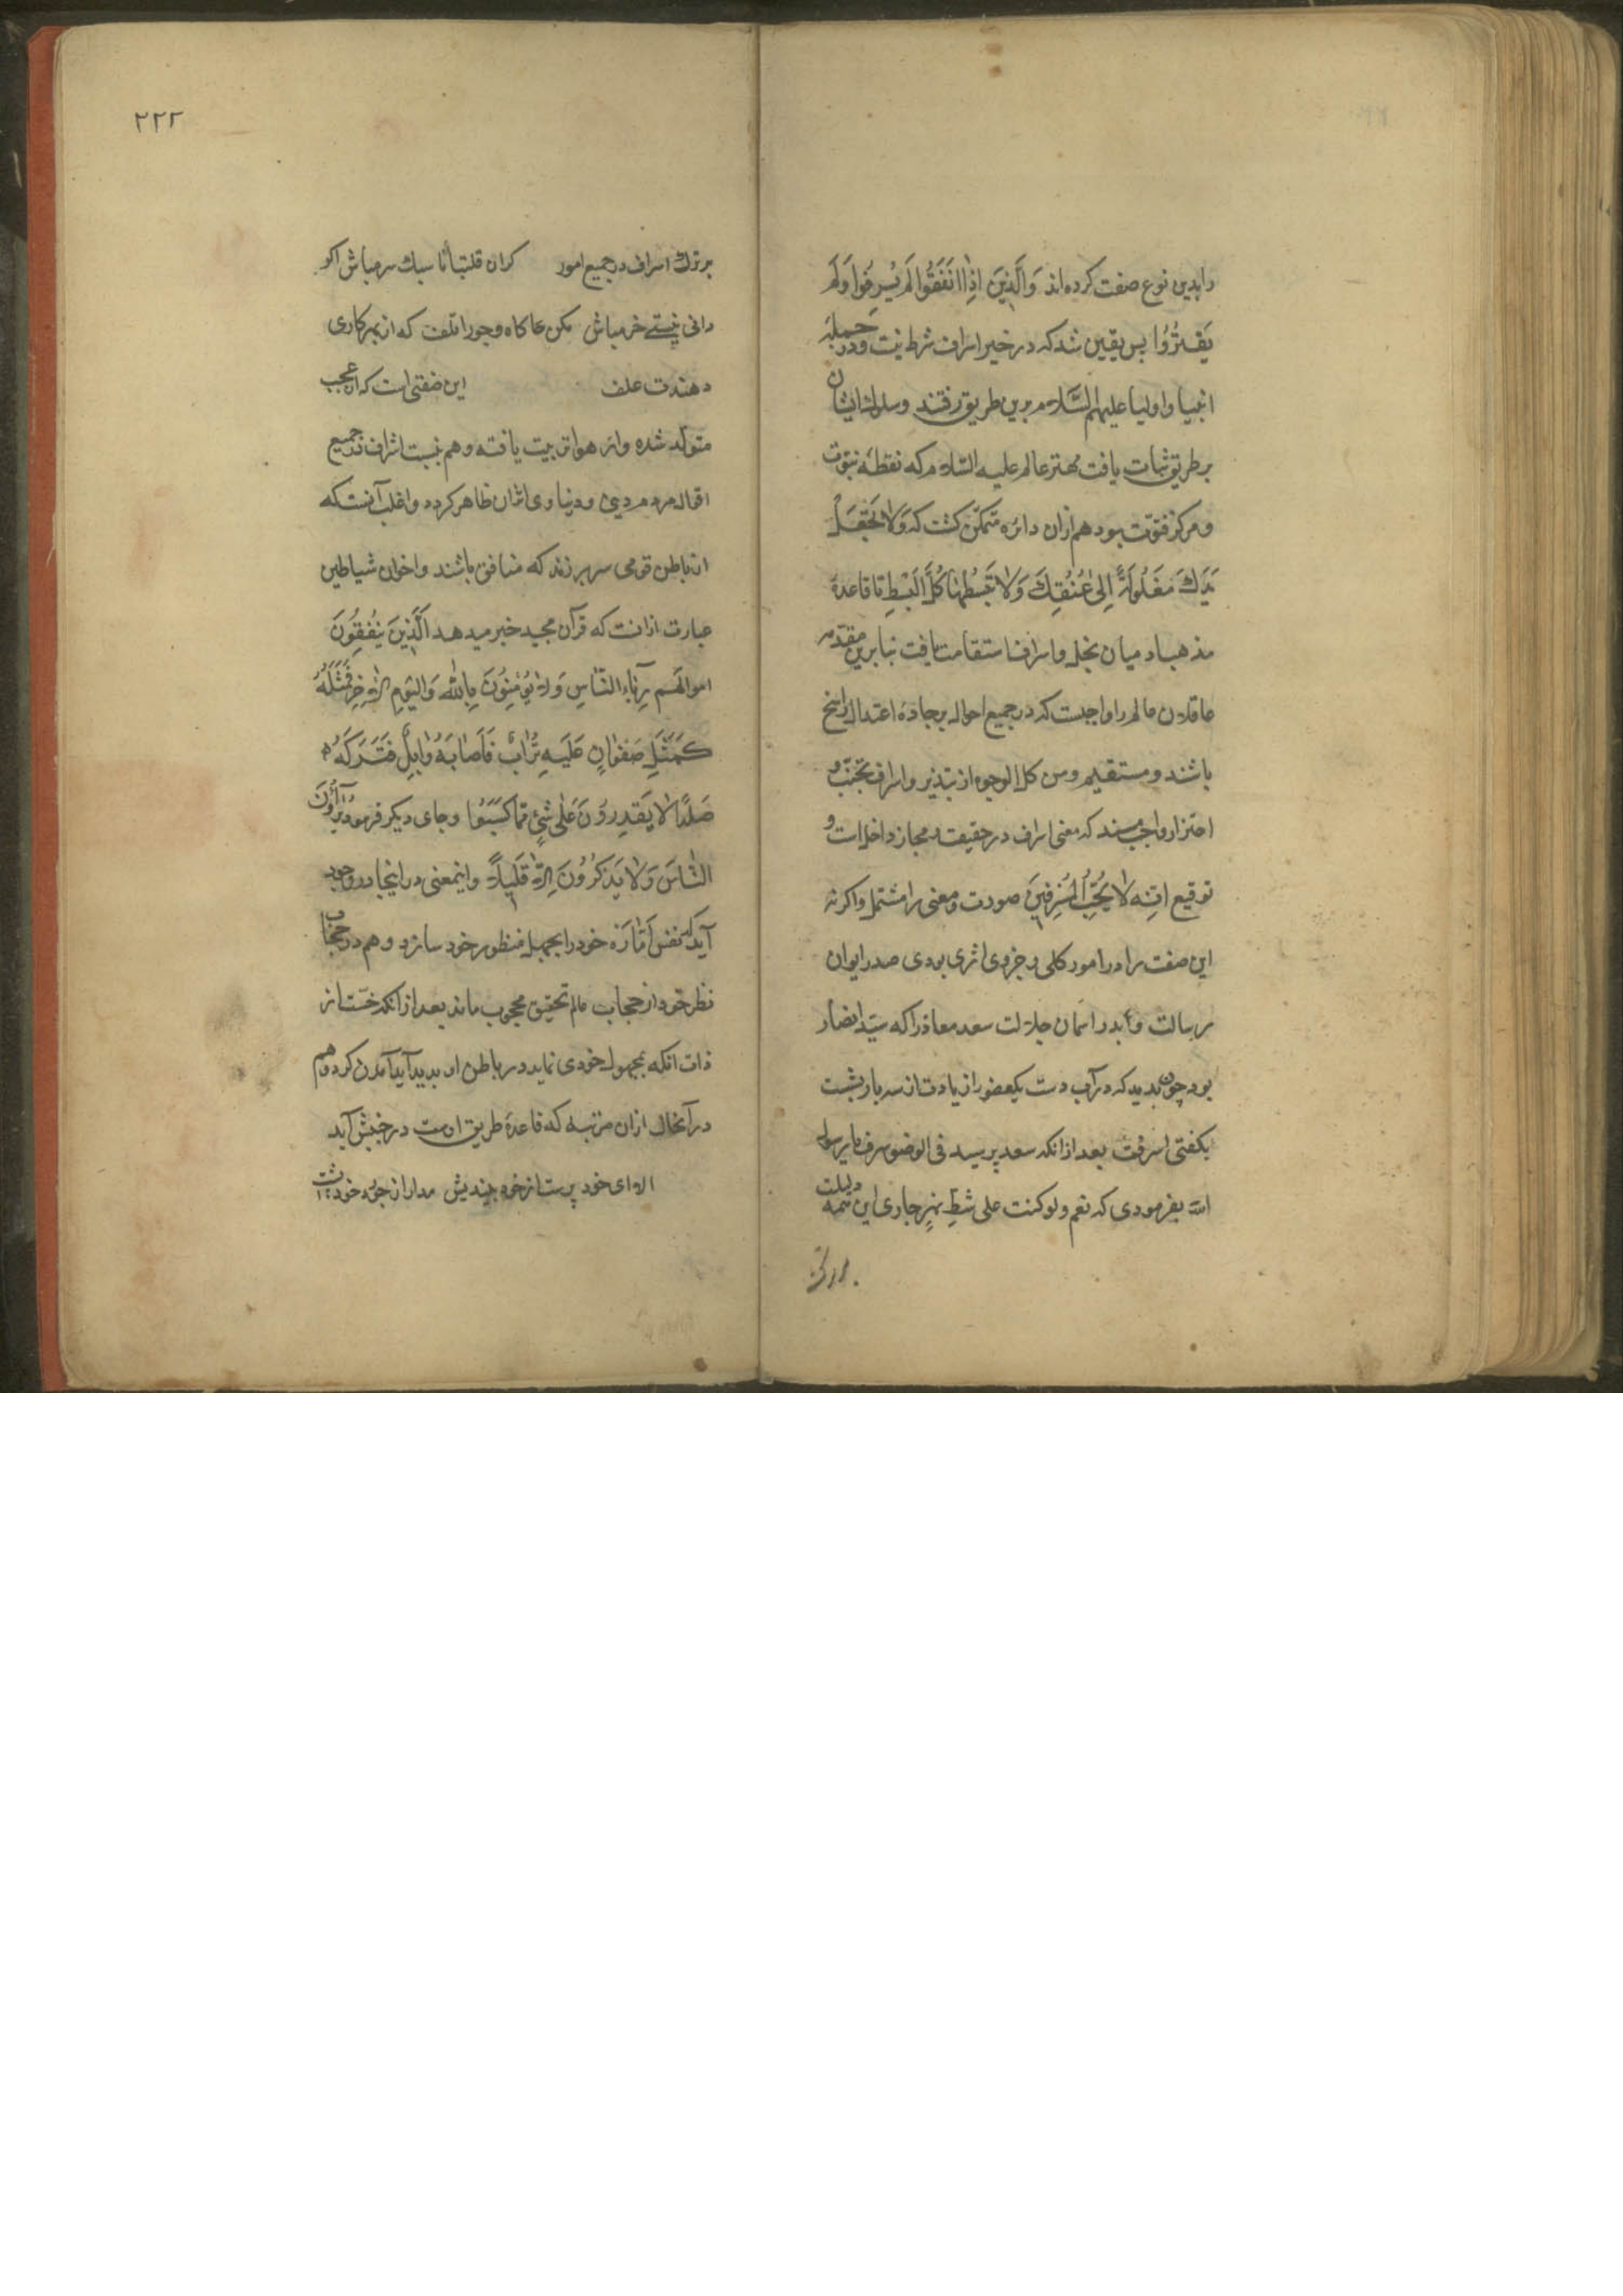 رابدین نوع صفت کرده‌اند وَالَّذِينَ اِذٰا انَفَقُوا لَم يُسرِفُوا وَلَم
يَقتُرُوا پس یقین شد که در خیر اسراف شرط نیست و در جمله
انبیا و اولیا علیهم السَّلام برین طریق رفتند و سلوک ایشان
بر طریق ثبات یافت مهتر عالم علیه السّلام که نقطهٔ نبوّت
و مرکز فتوّت بود هم ازان دائره متمکّن کشت که وَلا تَجْعَلْ
يَدَكَ مَغلُولَةً اِلىٰ عُنُقِكَ وَلا تَبسُطهٰا كُلَّ البَسْطِ تا قاعدهٔ
مذهب او میان بخل و اسراف استقامت یافت بنا برین مقدّمه
عاقلان عالم را واجبست که در جمیع احوال بر جادهٔ اعتدال راسخ
باشند و مستقیم و من کل الوجوه از تبذیر و اسراف تجنّب و
احتراز واجب بینند که معنی اسراف در حقیقت و مجاز داخل است و
توقیع اِنَّه لا يُحِبُّ المُسْرِفينَ صورت و معنی را مشتمل و اکر نه
این صفت را در امور کلی و جزوی اثری بودی صدر ایوان
رسالت و بدر اسمان جلالت سعد معاذ را که سیّد انصار
بود چون بدید که در آب دست یکعضو را زیادت از سه بار بشست
بکفتی اسرفت بعد ازانکه سعد پرسید فی الوضو سرف یا رسول
الله بفرمودی که نعم ولو کنت علی شطِّ نهرٍ جاری این همه دلیلست
۲۲۲
بر ترک اسراف در جمیع امور کران قلتبانا سبک سر مباش اکر
دانی نیستے خر مباش مکن عا کاه و جو را تلف که از بهر کاری
دهندت علف این صفتی است که از عجب
متولّد شده و از هوا تربیت یافته و هم نسبت اشراف در جمیع
اقوال مردم دینی و دنیاوی اثران ظاهر کردد و اغلب آنست که
از باطن قومی سر بر زند که منافق باشند و اخوان شیاطین
عبارت ازانست که قرآن مجید خبر میدهد اَلَّذِينَ يُنْفِقُونَ
اموالَهُم رِئاءَ النّاسِ وَلا يُؤمِنُونَ بِاللّٰه وَاليَومِ الاٰخِرِ فَمَثَلُهُ
كَمَثَلِ صَفوٰانٍ عَلَيهِ تُرٰابٌ فَاَصٰابَهُ وٰابِلٌ فَتَرَكَهُ
صَلدًا لا يَقدِرُونَ عَلىٰ شَيْءٍ مِمّا كَسَبُوا و جای دیکر فرمود يُرآؤُنَ
النّٰاسَ وَلا يَذكُرُونَ اِلاّ قَليلاً و اینمعنی در اینجا در وجود
آید که نفس اَمّاره خود را بجهل منظور خود سازد و هم در حجاب
نظر خود از حجاب عالم تحقیق محجوب ماند بعد ازانکه خسّت از
ذات انکه بمجهول خودی نماید در باطن او پدید آید آمدن کرد و هم
در آنحال ازان مرتبه که قاعدهٔ طریق اوست در جنبش آید
الا ای خود پرست از خود بیندیش مدار از جرم خود